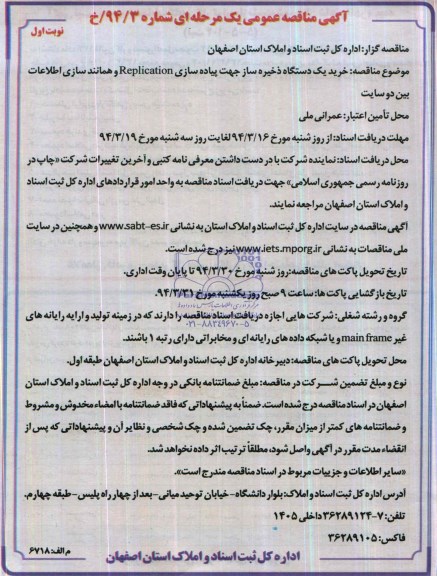 آگهی مناقصه عمومی یک مرحله ای شماره ۹۴/۳/خ
نوبت اول
مناقصه گزار: اداره کل ثبت اسناد و املاک استان اصفهان
موضوع مناقصه: خرید یک دستگاه ذخیره ساز جهت پیاده سازی Replication و همانند سازی اطلاعات
بین دو سایت
محل تأمین اعتبار: عمرانی ملی
مهلت دریافت اسناد: از روز شنبه مورخ ۹۴/۳/۱۶ لغایت روز سه شنبه مورخ ۹۴/۳/۱۹
محل دریافت اسناد: نماینده شرکت با در دست داشتن معرفی نامه کتبی و آخرین تغییرات شرکت «چاپ در
روزنامه رسمی جمهوری اسلامی» جهت دریافت اسناد مناقصه به واحد امور قراردادهای اداره کل ثبت اسناد
و املاک استان اصفهان مراجعه نمایند.
آگهی مناقصه در سایت اداره کل ثبت اسناد و املاک استان به نشانی www.sabt-es.ir و همچنین در سایت
ملی مناقصات به نشانی www.iets.mporg.ir نیز درج شده است.
تاریخ تحویل پاکت های مناقصه: روز شنبه مورخ ۹۴/۳/۳۰ تا پایان وقت اداری.
تاریخ بازگشایی پاکت ها: ساعت ۹ صبح روز یکشنبه مورخ ۹۴/۳/۳۱.
۰۲۱-۸۸۳۴۹۶۷۰-۵
گروه و رشته شغلی: شرکت هایی اجازه دریافت اسناد مناقصه را دارند که در زمینه تولید و ارایه رایانه های
غیر mainframe و یا شبکه داده های رایانه ای و مخابراتی دارای رتبه ۱ باشند.
محل تحویل پاکت های مناقصه: دبیرخانه اداره کل ثبت اسناد و املاک استان اصفهان طبقه اول.
نوع و مبلغ تضمین شرکت در مناقصه: مبلغ ضمانتنامه بانکی در وجه اداره کل ثبت اسناد و املاک استان
اصفهان در اسناد مناقصه درج شده است. ضمناً به پیشنهاداتی که فاقد ضمانتنامه با امضاء مخدوش و مشروط
و ضمانتنامه های کمتر از میزان مقرر، چک تضمین شده و چک شخصی و نظایر آن و پیشنهاداتی که پس از
انقضاء مدت مقرر در آگهی واصل شود، مطلقاً ترتیب اثر داده نخواهد شد.
«سایر اطلاعات و جزییات مربوط در اسناد مناقصه مندرج است».
آدرس اداره کل ثبت اسناد و املاک: بلوار دانشگاه - خیابان توحید میانی - بعد از چهار راه پلیس - طبقه چهارم.
تلفن: ۷-۳۶۲۸۹۱۲۴ داخلی ۱۴۰۵
فاکس: ۳۶۲۸۹۱۰۵
اداره کل ثبت اسناد و املاک استان اصفهان
م الف: ۶۷۱۸